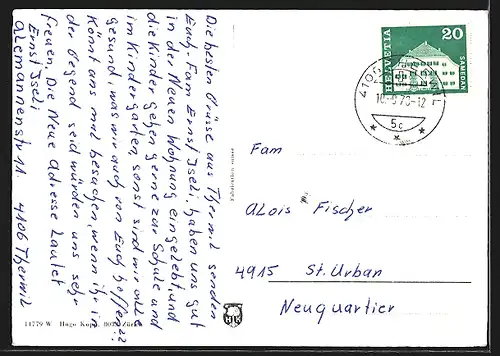 Die besten Grüsse aus Therwil senden
Euch Fam Ernst Iseli, haben uns gut
in der Neuen Wohnung eingelebt und
die Kinder gehen gerne zur Schule und
im Kindergarten, sonst sind wir alle
gesund, was wir auch von Euch hoffen!??
Könnt uns mal besuchen, wenn ihr in
der Gegend seid würden uns sehr
freuen. Die Neue Adresse Lautet
Ernst Iseli
Alemannenstr 11. 4106 Therwil
11779 W Hugo Kopp, Zürich
HELVETIA
20
SANEGRN
4106
5c
Fam
Alois Fischer
4915 St. Urban
Neuquartier